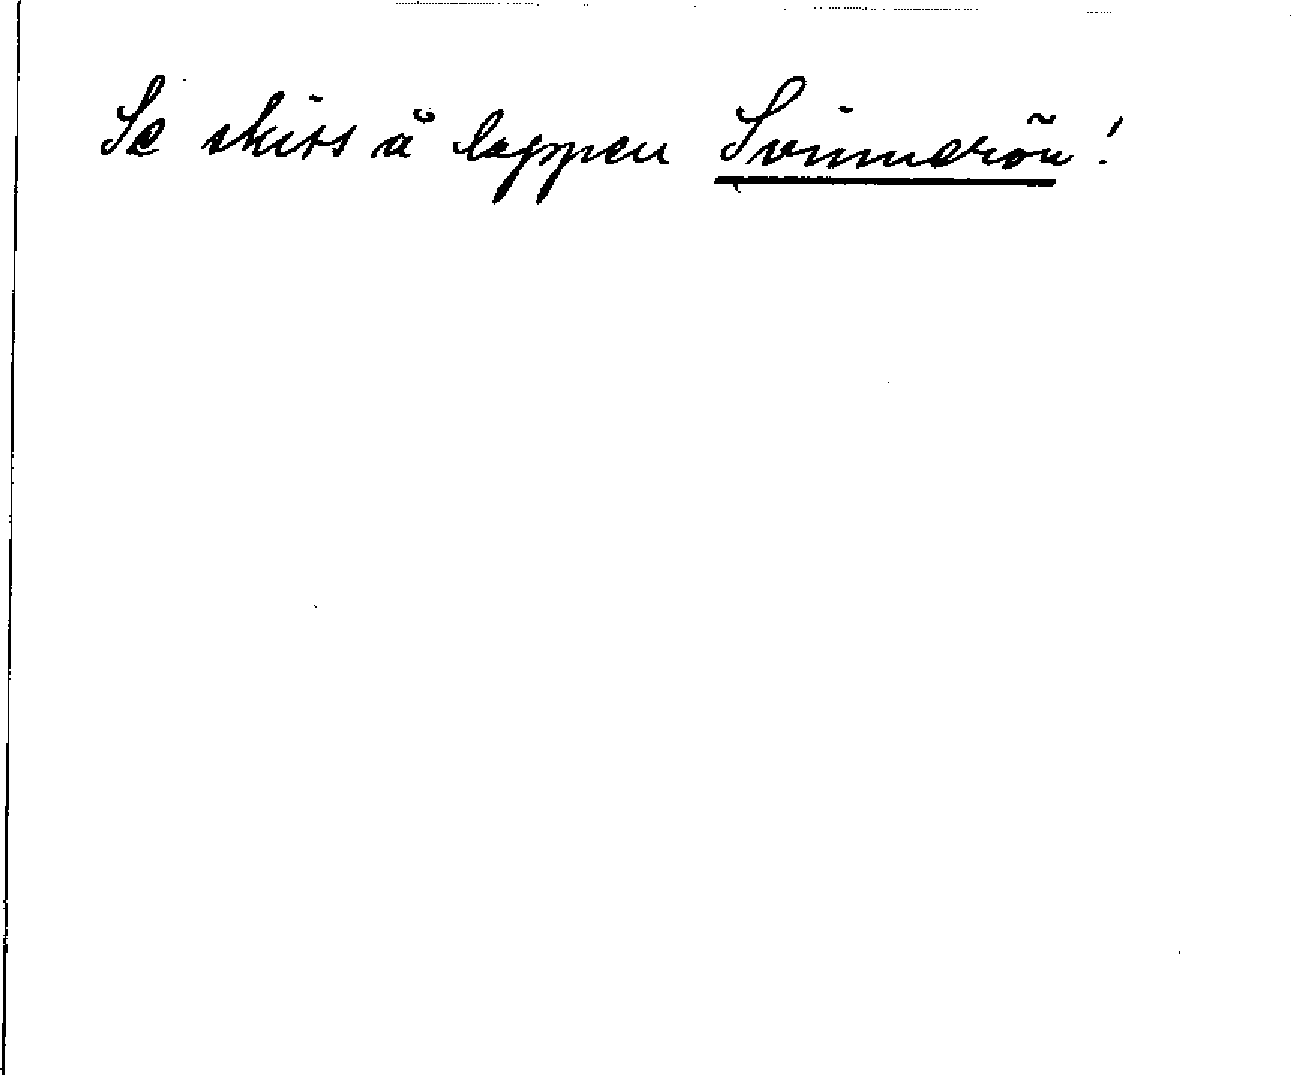 Se skiss å lappen Svinnerön!